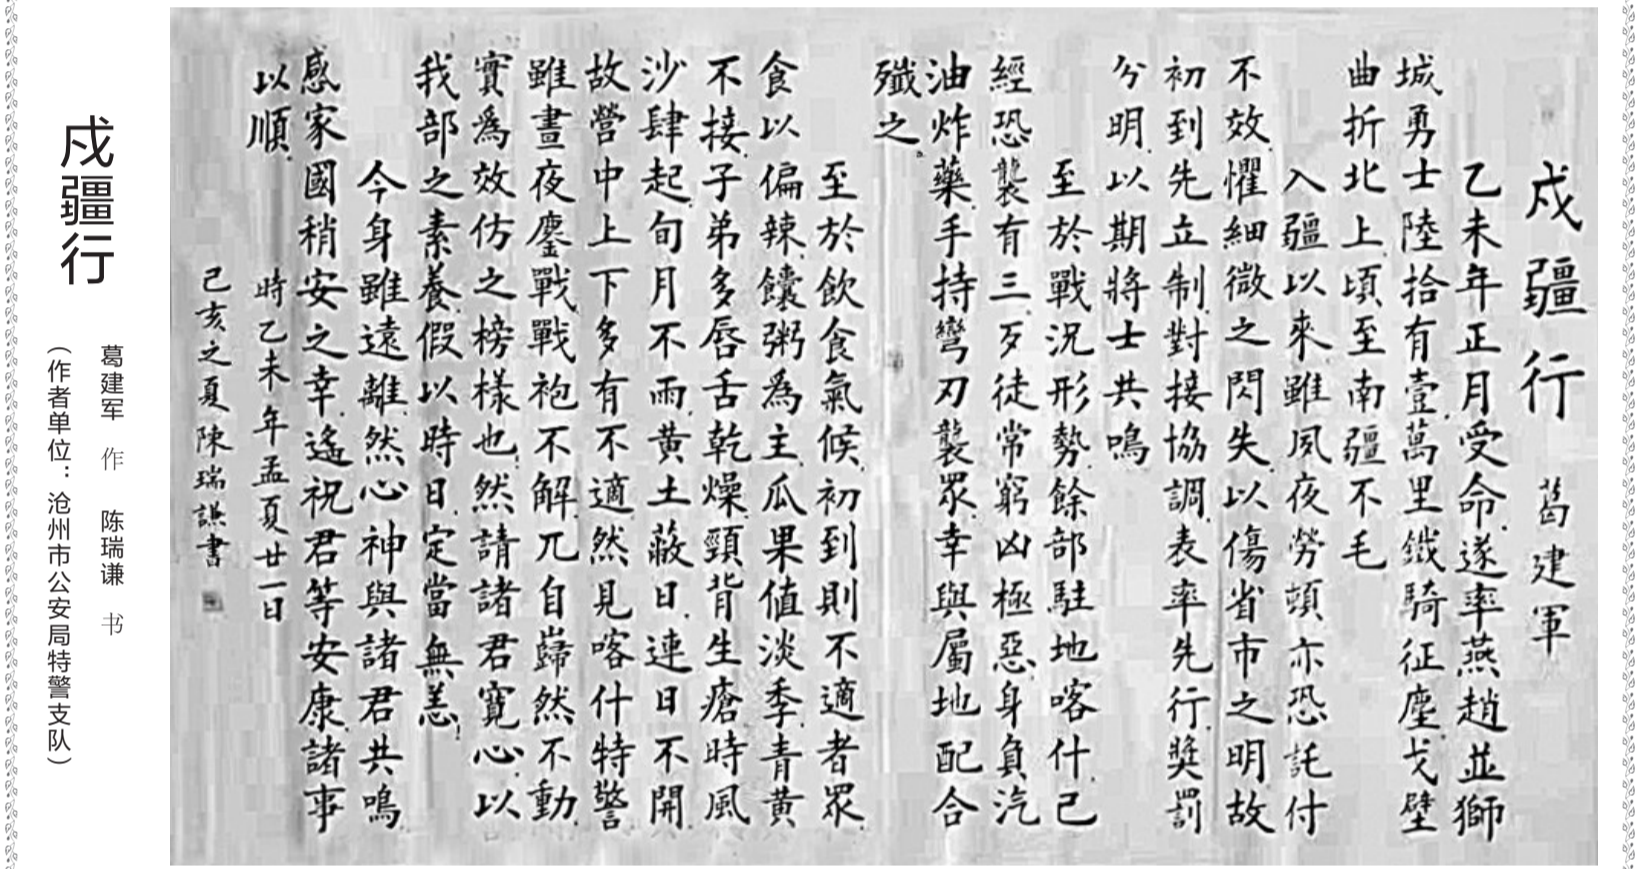 戍疆行
葛建军 作 陈瑞谦 书
（作者单位：沧州市公安局特警支队）
戍疆行 葛建軍
乙未年正月受命遂率燕趙並獅
城勇士陸拾有壹萬里鐵騎征塵戈壁
曲折北上頃至南疆不毛
入疆以來雖夙夜勞頓亦恐託付
不效懼細微之閃失以傷省市之明故
初到先立制對接協調表率先行獎罰
分明以期將士共鳴
至於戰況形勢餘部駐地喀什已
經恐襲有三歹徒常窮凶極惡身負汽
油炸藥手持彎刃襲眾幸與屬地配合
殲之
至於飲食氣候初到則不適者眾
食以偏辣饢粥為主瓜果值淡季青黃
不接子弟多唇舌乾燥頸背生瘡時風
沙肆起旬月不雨黃土蔽日連日不開
故營中上下多有不適然見喀什特警
雖晝夜鏖戰戰袍不解兀自巋然不動
實為效仿之榜樣也然請諸君寬心以
我部之素養假以時日定當無恙
今身雖遠離然心神與諸君共鳴
感家國稍安之幸遙祝君等安康諸事
以順 時乙未年孟夏廿一日
己亥之夏陳瑞謙書